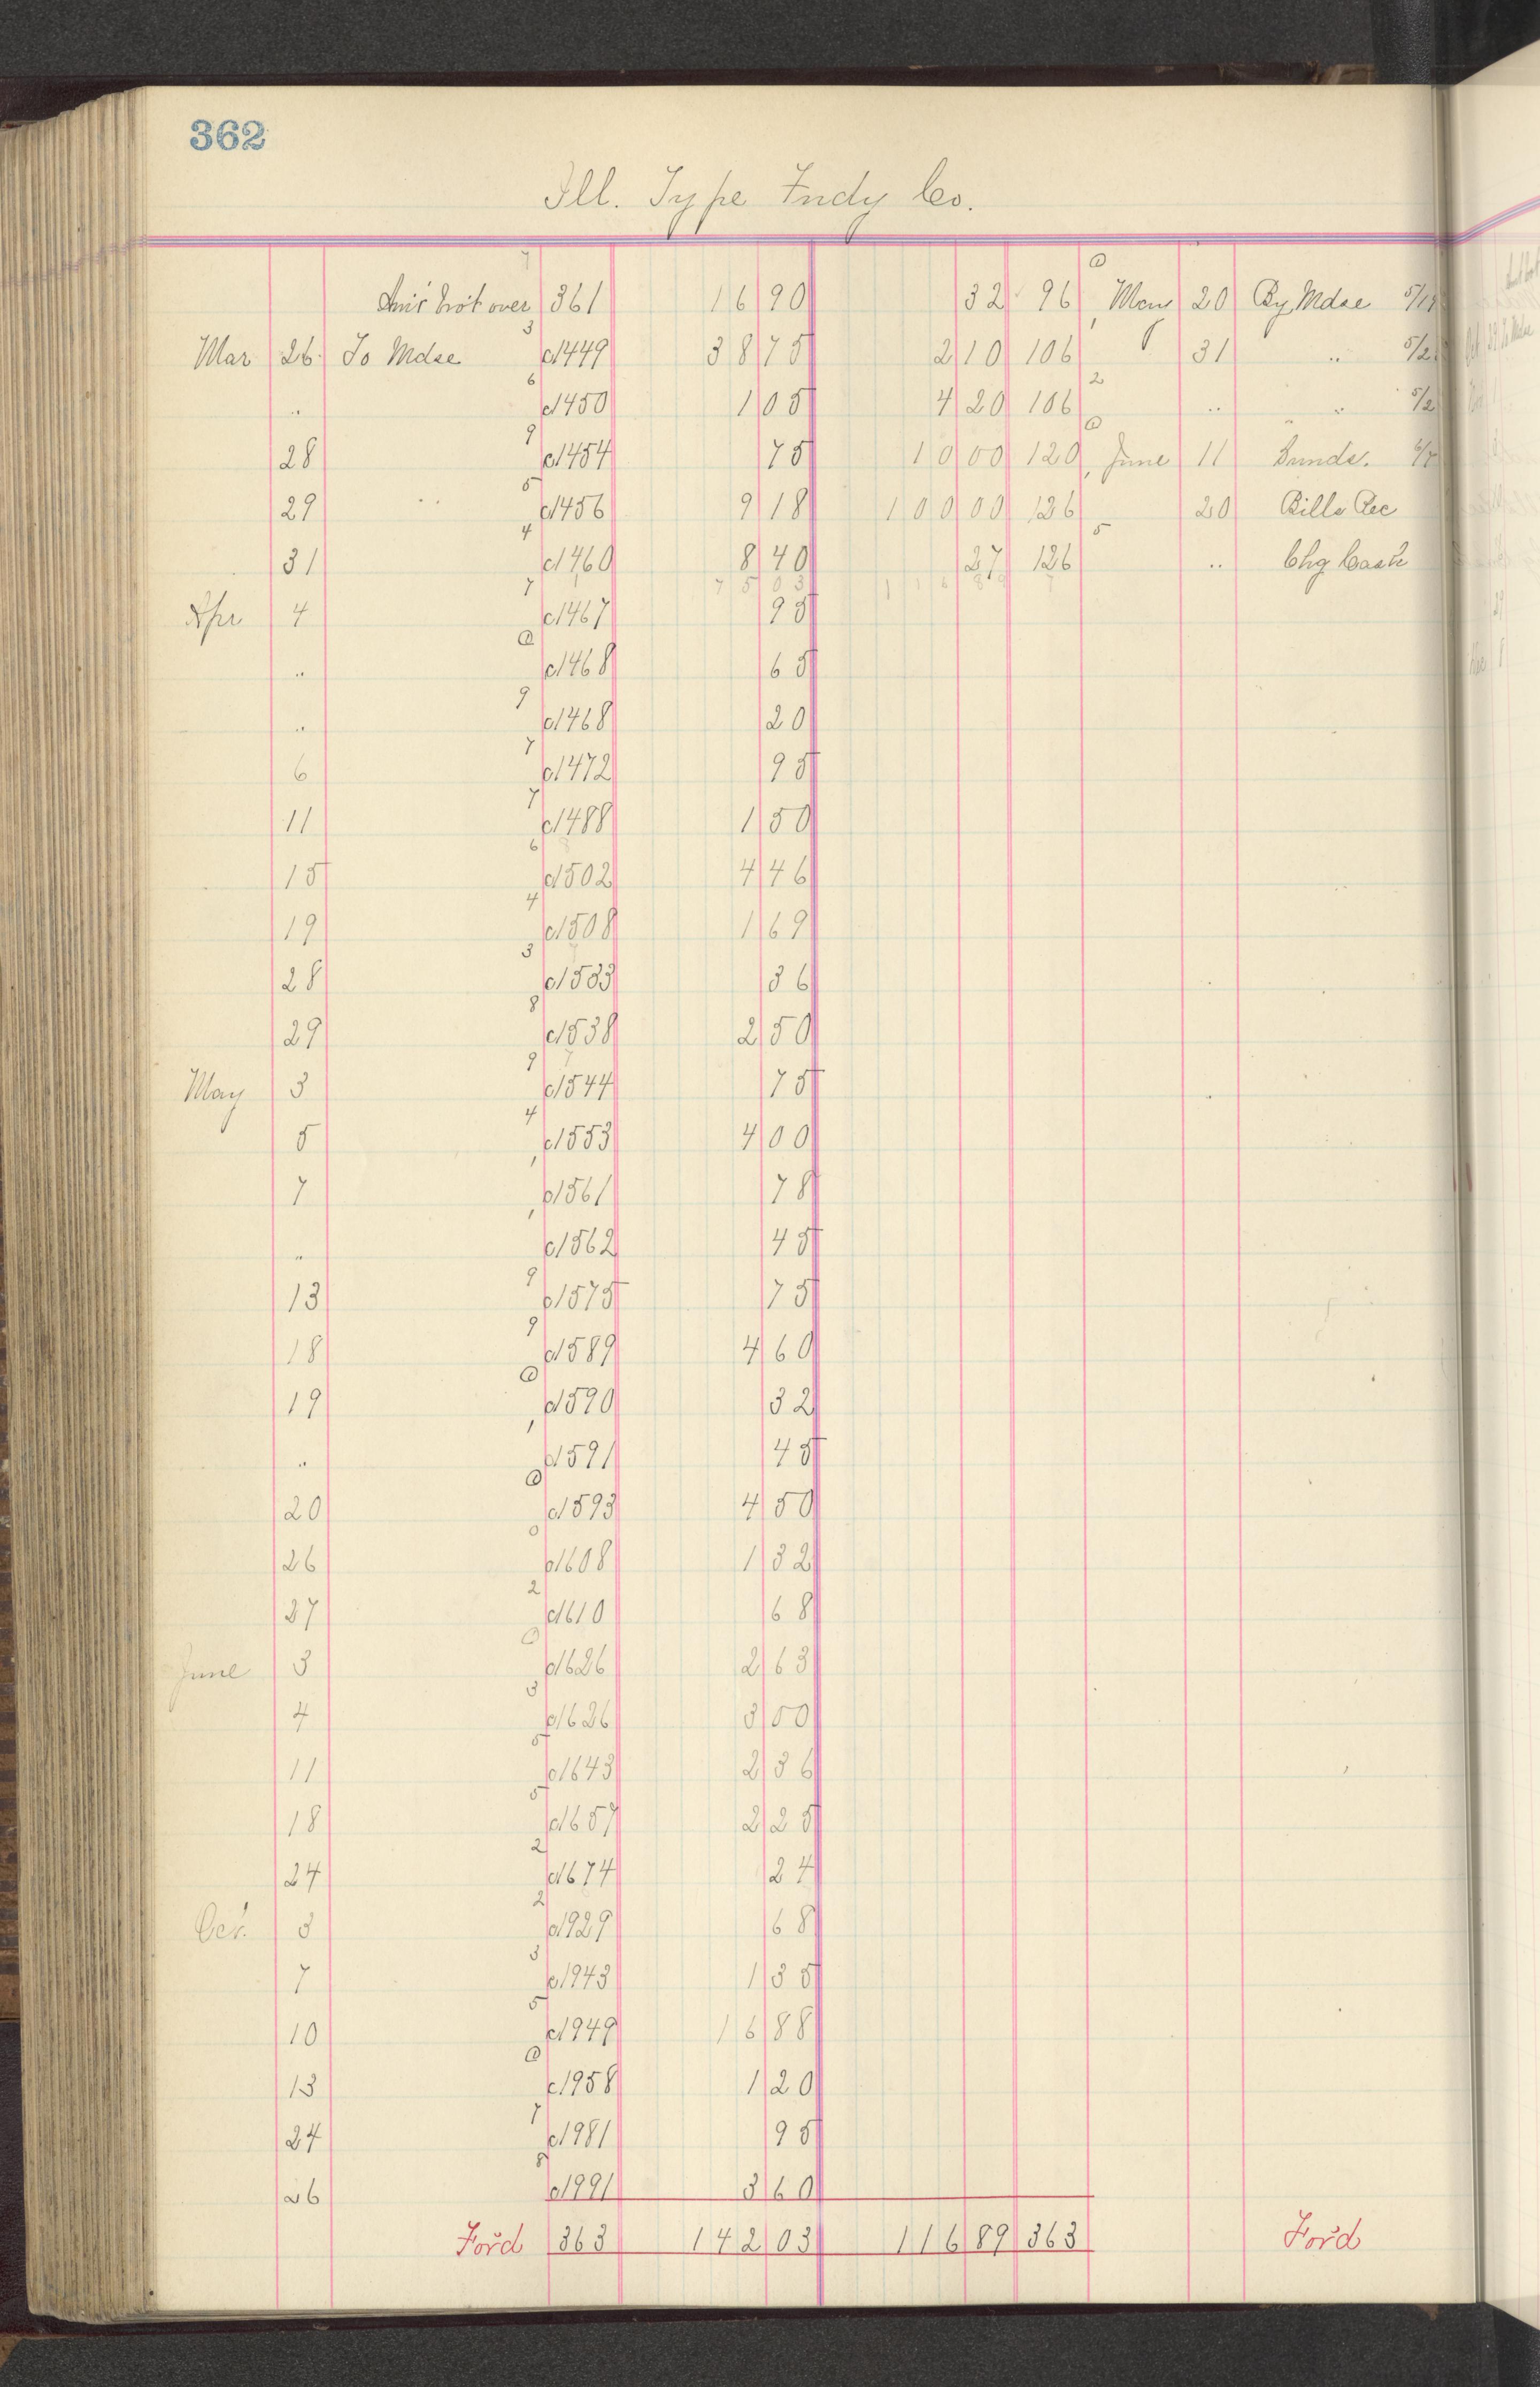 362
Ill. Type Fndy Co.
Am't bro't over 361 16 90 32 96 Mar 20 By Mdse
Mar 26 To Mdse c1449 38 75 2 10 106 31 "
" c1450 1 05 4 20 106 " "
28 c1454 75 10 00 120 June 11 Sunds.
29 " c1456 9 18 100 00 126 20 Bills Rec
31 c1460 8 40 27 126 " Chg Cash
75 03 116 89
Apr 4 c1467 95
" c1468 65
" c1468 20
6 c1472 95
11 c1488 1 50
15 c1502 4 46
19 c1508 1 69
28 c1533 36
29 c1538 2 50
May 3 c1544 75
5 c1553 4 00
7 c1561 78
" c1562 45
13 c1575 75
18 c1589 4 60
19 c1590 32
" c1591 45
20 c1593 4 50
26 c1608 1 32
27 c1610 68
June 3 c1626 2 63
4 c1626 3 00
11 c1643 2 36
18 c1657 2 25
24 c1674 24
Oct. 3 c1929 68
7 c1943 1 35
10 c1949 16 88
13 c1958 1 20
24 c1981 95
26 c1991 3 60
For'd 363 142 03 116 89 363 For'd